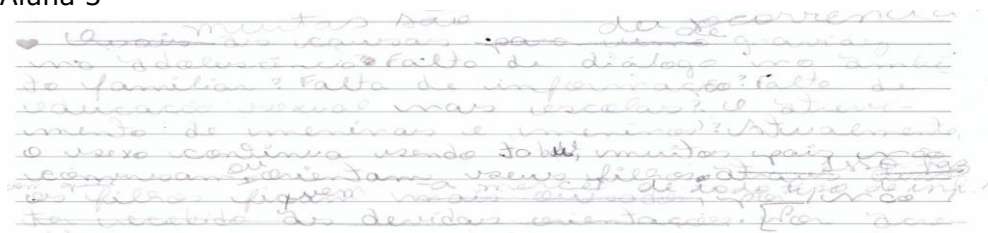 Aluna 3
muitas são da ocorrência
Quais as causas para uma de gravidez
na adolescência? Falta de diálogo no âmbi-
to familiar? Falta de informação? Falta de
educação sexual nas escolas? O atrevi-
mento de meninas e meninos? Atualmente,
o sexo continua sendo tabu, muitos pais não
conversam ou orientam seus filhos
os filhos fiquem a mercê de todo tipo de inf.
recebido as devidas orientações. [Por acre-